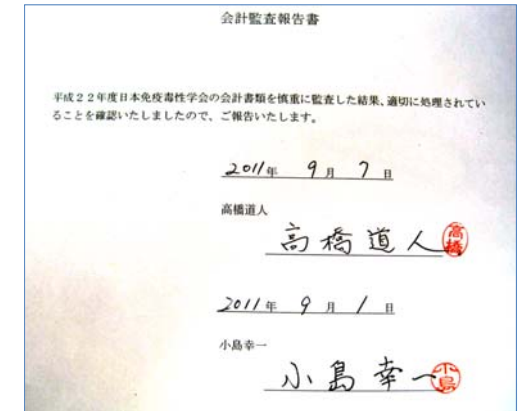 会計監査報告書
平成22年度日本免疫毒性学会の会計書類を慎重に監査した結果、適切に処理されてい
ることを確認いたしましたので、ご報告いたします。
2011年 9月 7日
高橋道人
高橋道人 高橋
2011年 9月 1日
小島幸一
小島幸一 小島